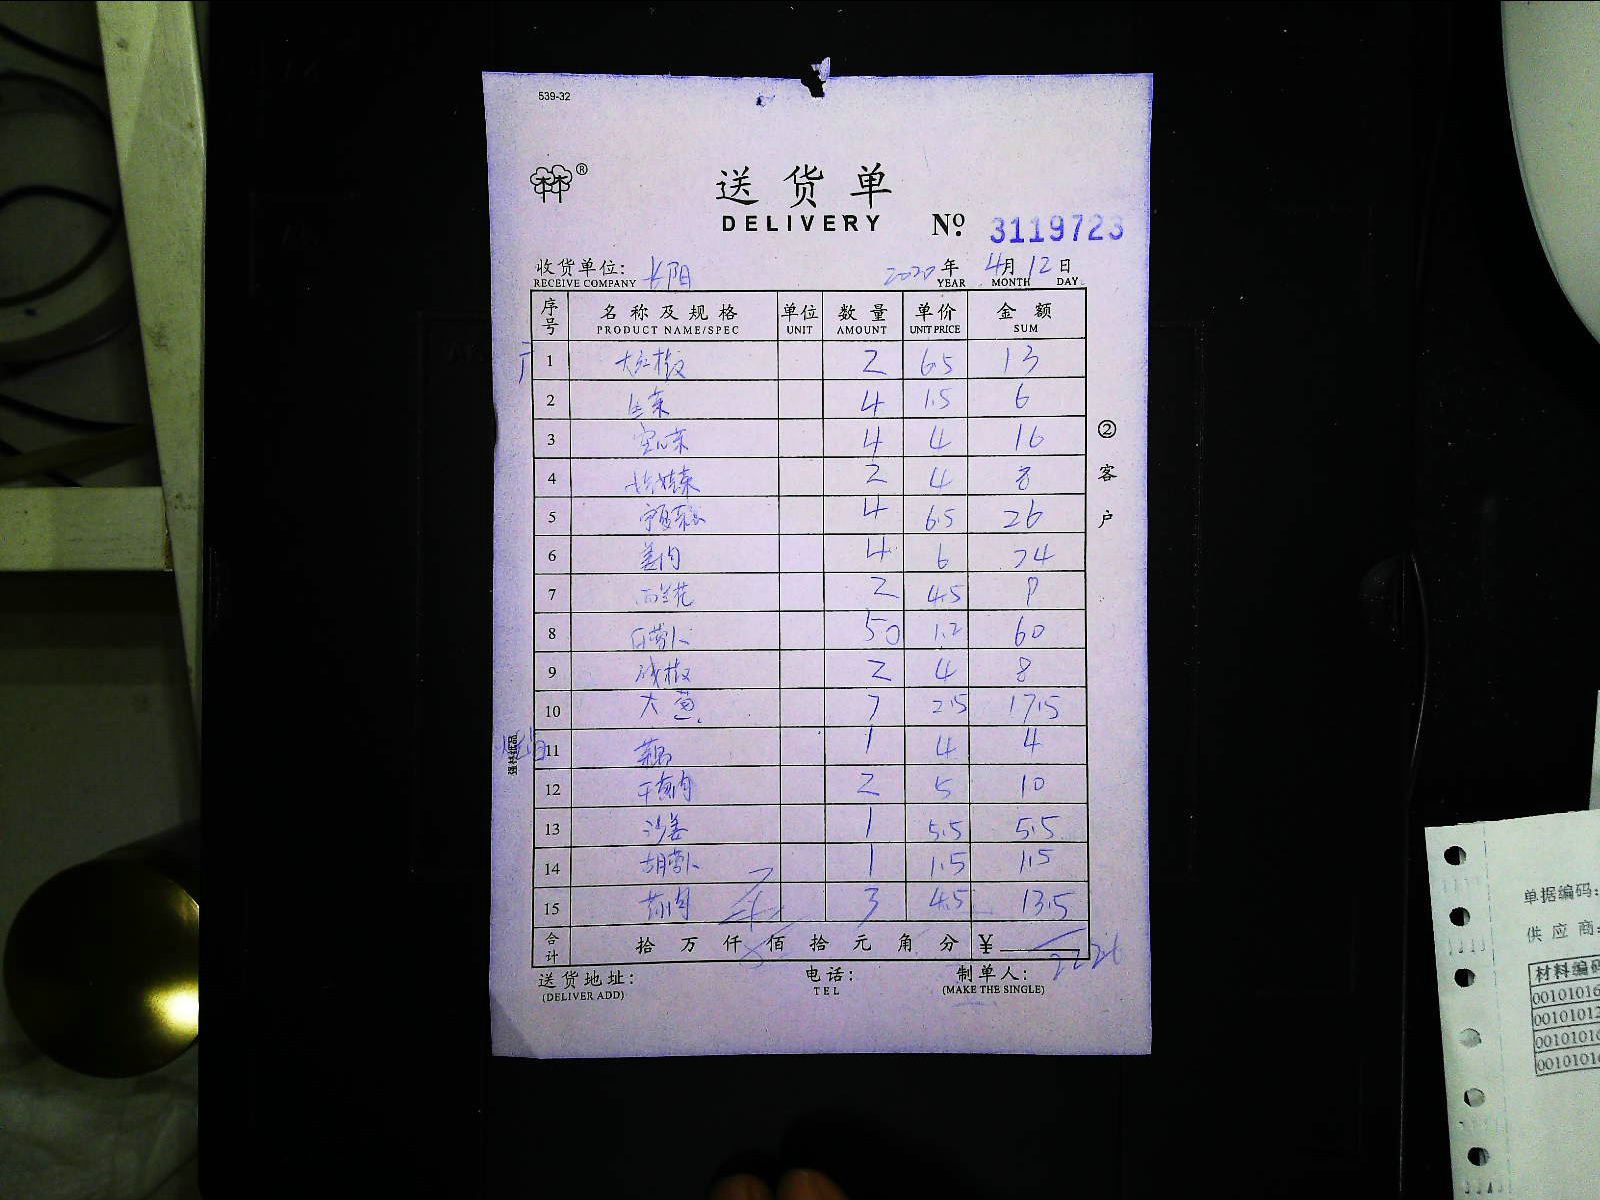 539-32
送货单
DELIVERY № 3119723
收货单位: 长阳 2020年4月12日
RECEIVE COMPANY YEAR MONTH DAY
序号 名称及规格 单位 数量 单价 金额
PRODUCT NAME/SPEC UNIT AMOUNT UNIT PRICE SUM
1 大红椒 2 6.5 13
2 生菜 4 1.5 6
3 空心菜 4 4 16
4 2 4 8
5 4 6.5 26
6 姜肉 4 6 24
7 西兰花 2 4.5 9
8 白萝卜 50 1.2 60
9 线椒 2 4 8
10 大葱 7 2.5 17.5
11 1 4 4
12 干葱肉 2 5 10
13 沙姜 1 5.5 5.5
14 胡萝卜 1 1.5 1.5
15 蒜肉 3 4.5 13.5
合计 拾万仟佰拾元角分 ¥
送货地址: 电话: 制单人:
(DELIVER ADD) TEL (MAKE THE SINGLE)
②客户
单据编码:
供应商:
材料编码